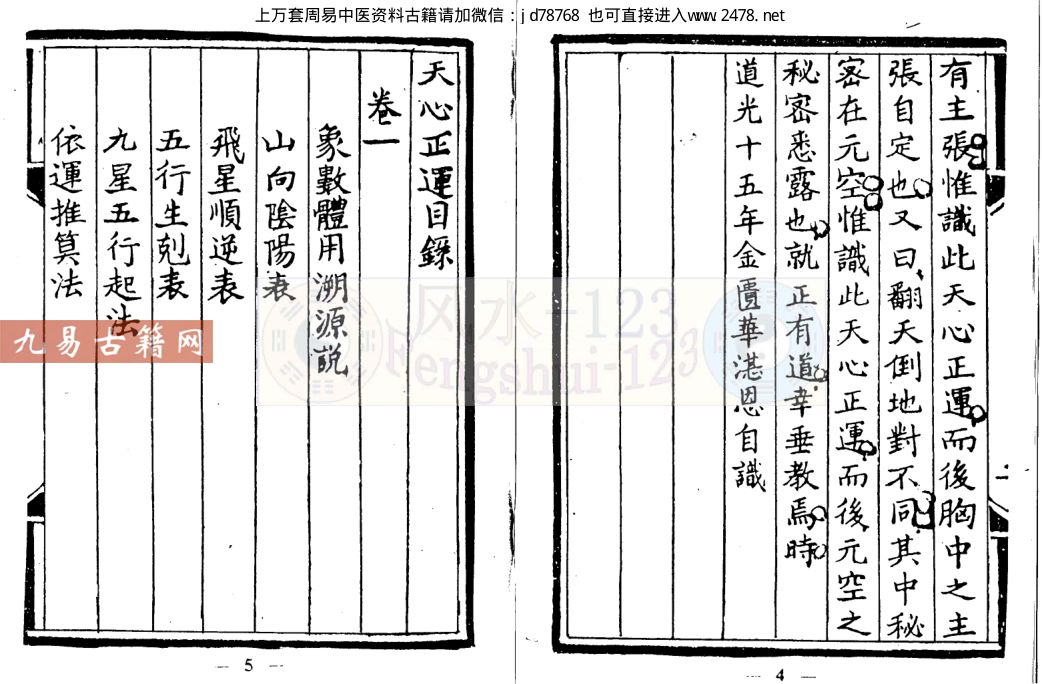 上万套周易中医资料古籍请加微信：jd78768 也可直接进入www.2478.net
有主張惟識此天心正運而後胸中之主
張自定也又曰翻天倒地對不同其中秘
密在元空惟識此天心正運而後元空之
秘密悉露也就正有道幸垂教焉時
道光十五年金匱華湛恩自識
二
— 4 —
天心正運目錄
卷一
象數體用溯源説
山向陰陽表
飛星順逆表
五行生剋表
九星五行起法
依運推算法
— 5 —
九易古籍网
风水-123
Fengshui-123